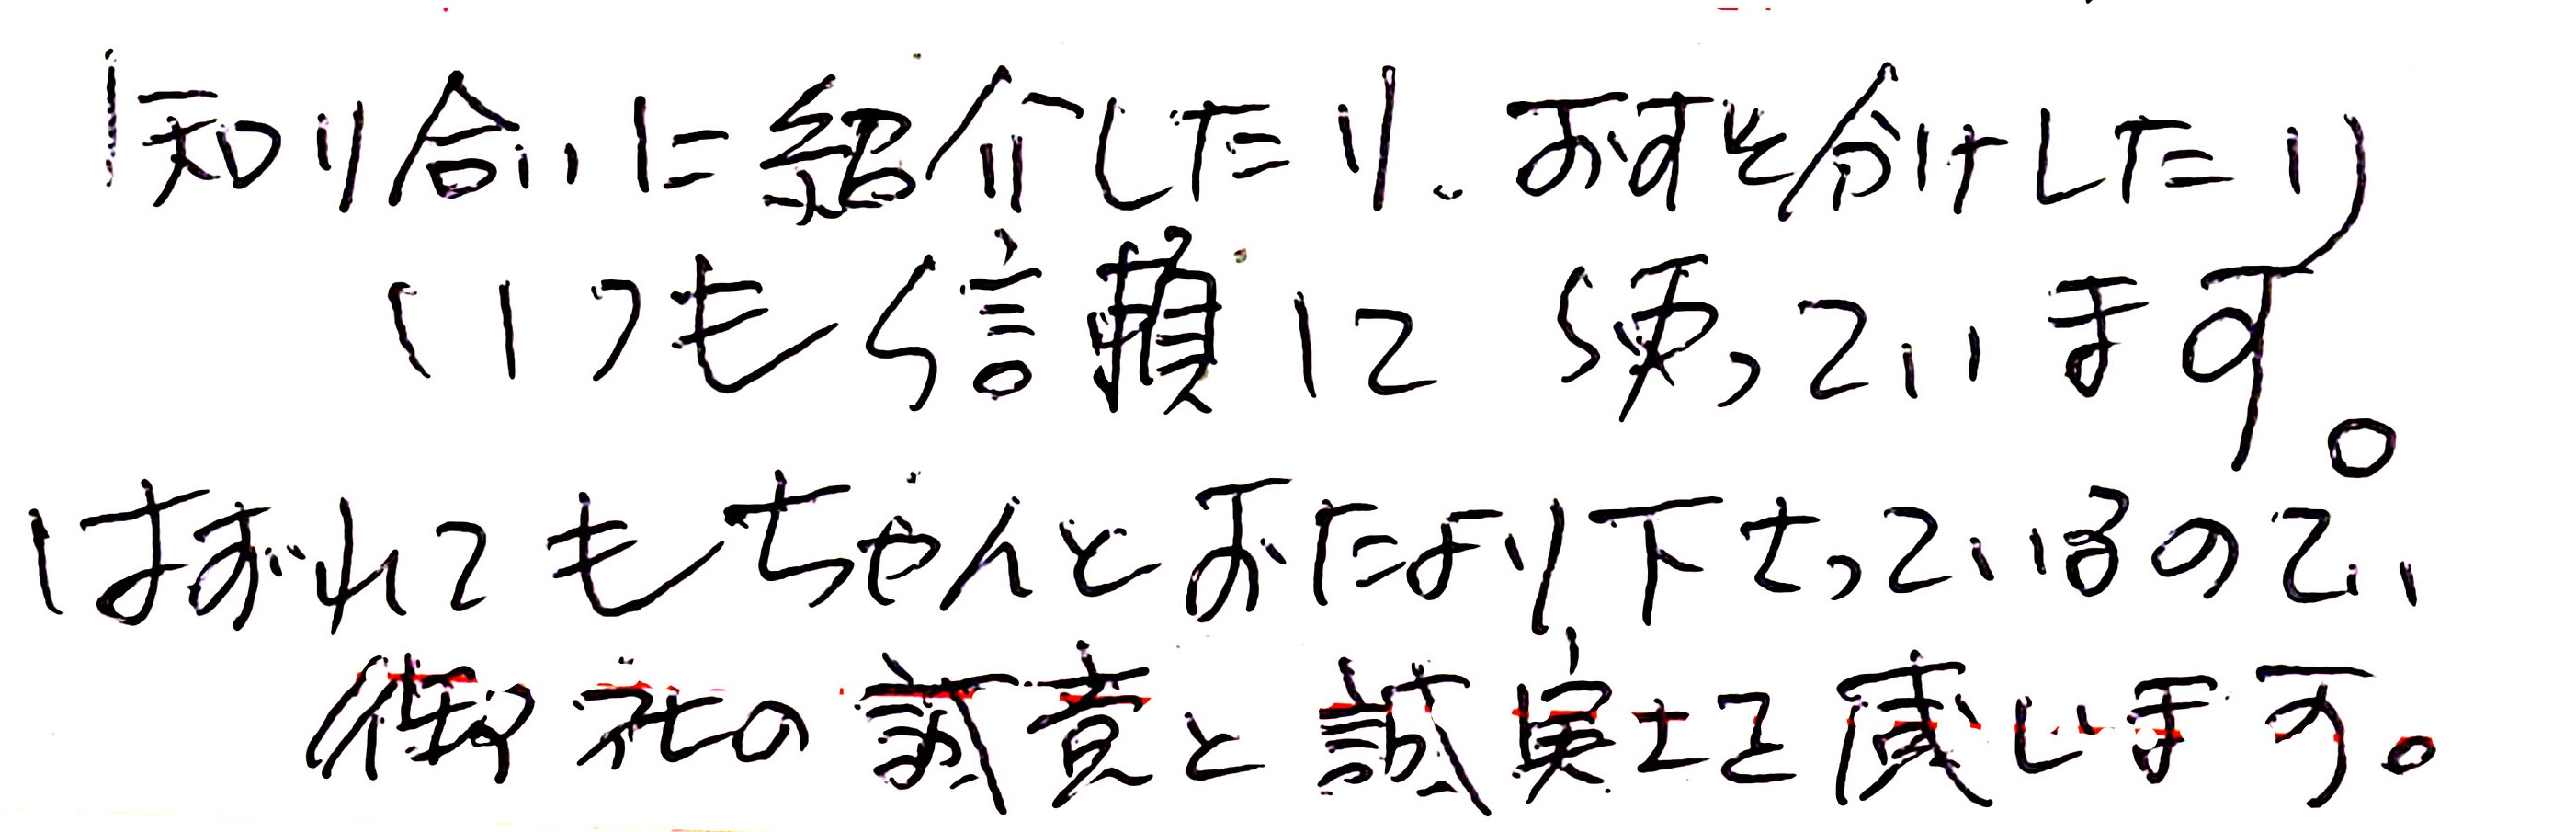 知り合いに紹介したり、おすそ分けしたり
いつも信頼に使っています。
はずれてもちゃんとおたより下さっているので、
御社の誠意と誠実さを感じます。